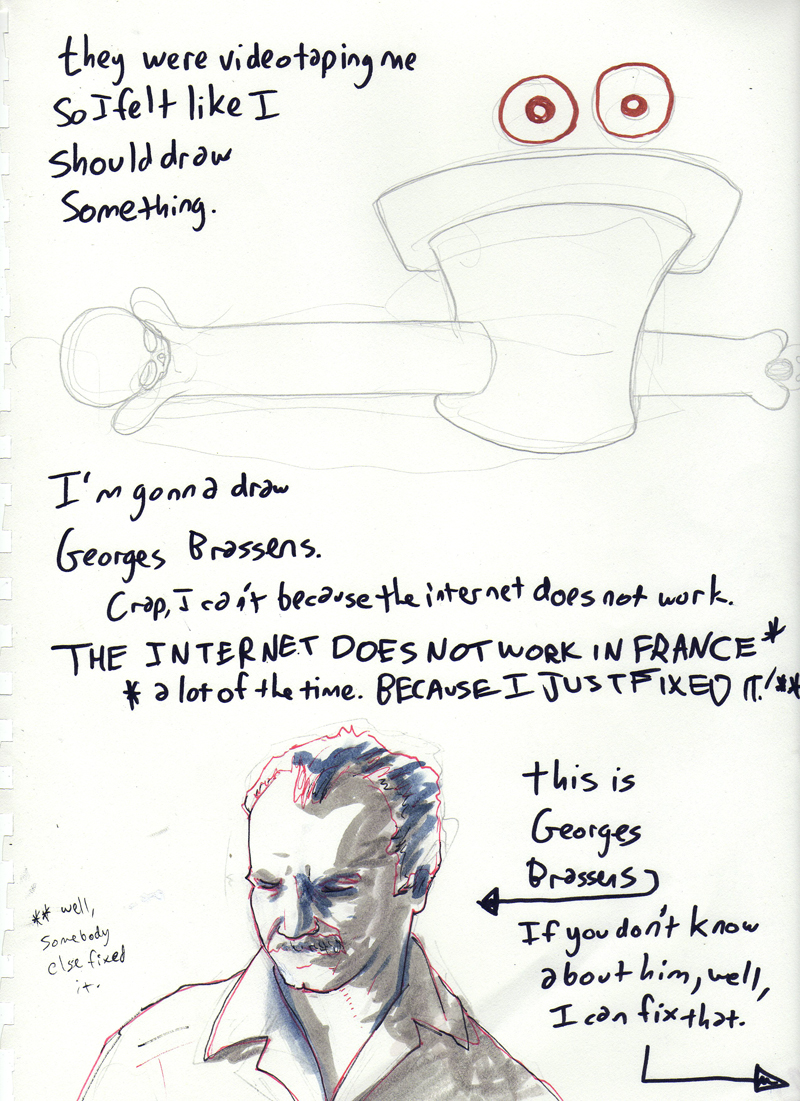 they were videotaping me
So I felt like I
should draw
Something.
I'm gonna draw
Georges Brassens.
Crap, I can't because the internet does not work.
THE INTERNET DOES NOT WORK IN FRANCE*
* a lot of the time. BECAUSE I JUST FIXED IT!**
this is
Georges
Brassens
If you don't know
about him, well,
I can fix that.
** well,
Somebody
else fixed
it.